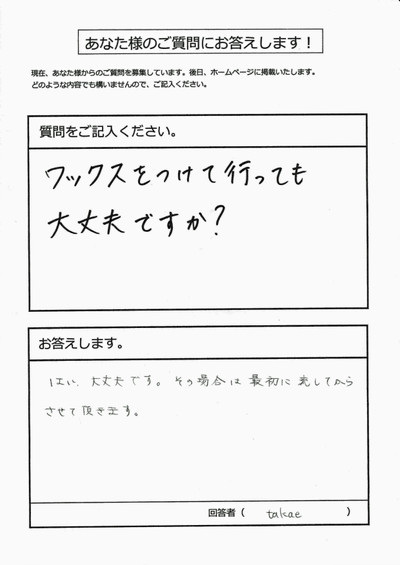 あなた様のご質問にお答えします！
現在、あなた様からのご質問を募集しています。後日、ホームページに掲載いたします。
どのような内容でも構いませんので、ご記入ください。
質問をご記入ください。
ワックスをつけて行っても
大丈夫ですか？
お答えします。
はい、大丈夫です。その場合は最初に流してから
させて頂きます。
回答者（ takae ）